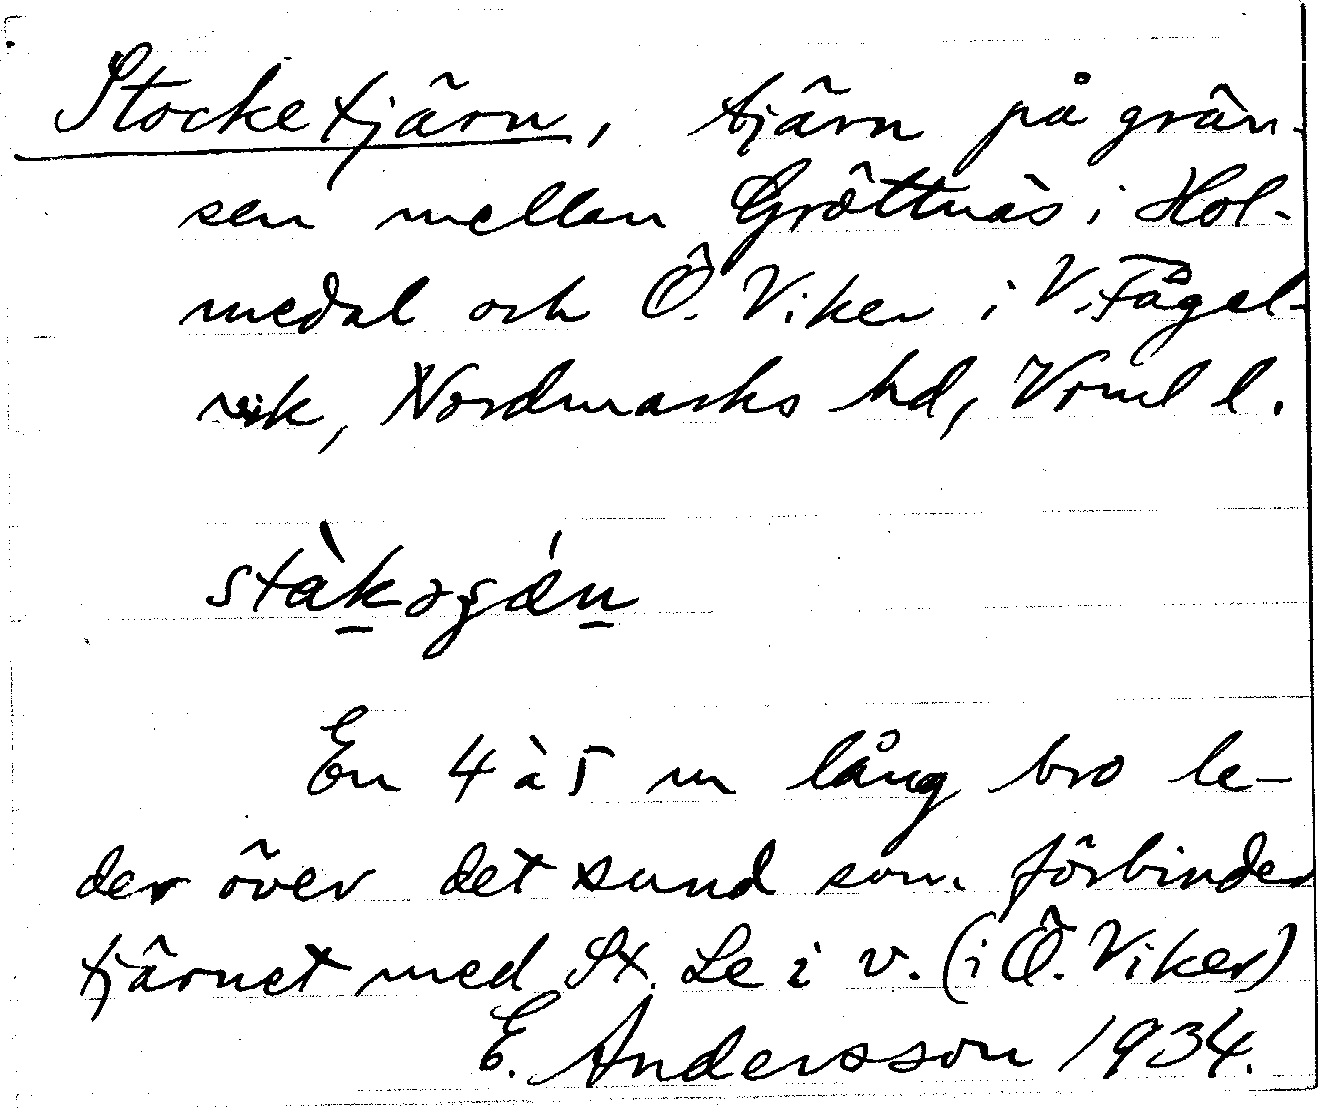 Stocketjärn, tjärn på grän-
sen mellan Gröttnäs i Hol-
medal och Ö. Viker i V. Fågel-
vik, Nordmarks hd, Vrml l.
stàkəʂǽn
En 4 à 5 m lång bro le-
der över det sund som förbinder
tjärnet med St. Le i v. (i Ö. Viker)
E. Andersson 1934.